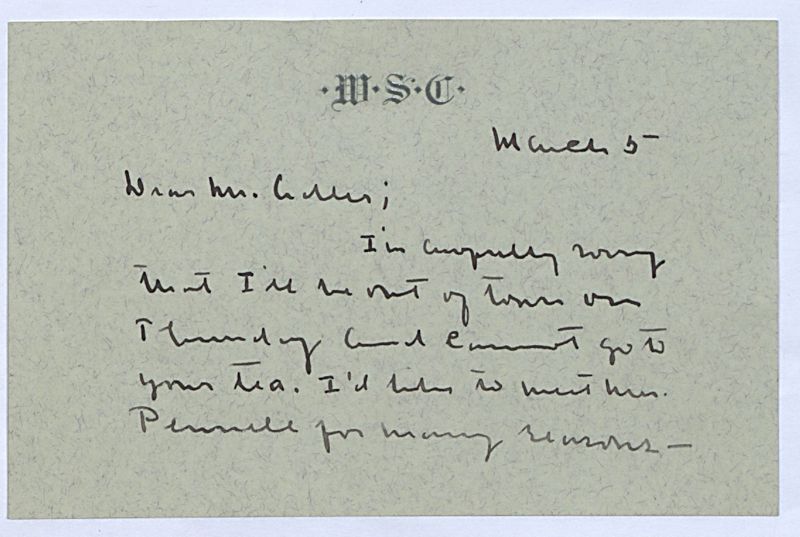 ·W·S·C·
March 5
Dear Mr.
I'm awfully sorry
that I'll be out of town on
Thursday and cannot go to
your tea. I'd like to meet Mrs.
Pennell for many reasons —